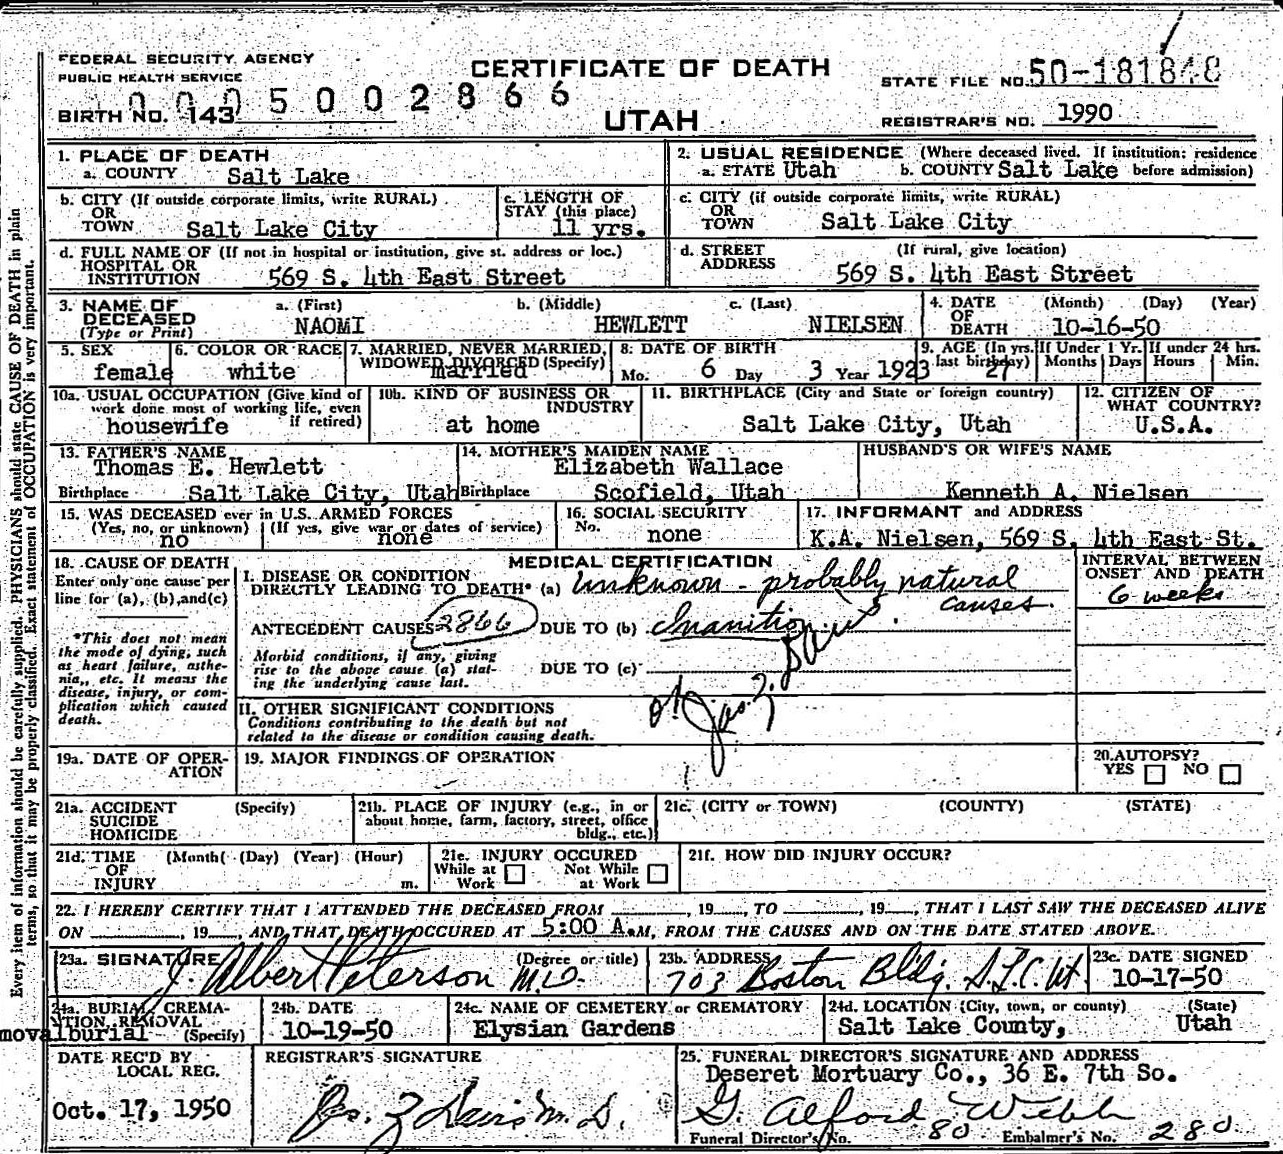 FEDERAL SECURITY AGENCY
PUBLIC HEALTH SERVICE
0005002866
BIRTH NO. 143
CERTIFICATE OF DEATH
UTAH
STATE FILE NO. 50-181848
REGISTRAR'S NO. 1990
1. PLACE OF DEATH
a. COUNTY Salt Lake
2. USUAL RESIDENCE (Where deceased lived. If institution: residence before admission)
a. STATE Utah b. COUNTY Salt Lake
b. CITY (If outside corporate limits, write RURAL)
OR
TOWN Salt Lake City
c. LENGTH OF
STAY (this place)
11 yrs.
c. CITY (if outside corporate limits, write RURAL)
OR
TOWN Salt Lake City
d. FULL NAME OF (If not in hospital or institution, give st. address or loc.)
HOSPITAL OR
INSTITUTION 569 S. 4th East Street
d. STREET (If rural, give location)
ADDRESS 569 S. 4th East Street
3. NAME OF DECEASED
(Type or Print)
a. (First) b. (Middle) c. (Last)
NAOMI HEWLETT NIELSEN
4. DATE OF DEATH (Month) (Day) (Year)
10-16-50
5. SEX
female
6. COLOR OR RACE
white
7. MARRIED, NEVER MARRIED,
WIDOWED DIVORCED (Specify)
married
8: DATE OF BIRTH
Mo. 6 Day 3 Year 1923
9. AGE (In yrs. last birthday) 27
If Under 1 Yr. Months Days
If under 24 hrs. Hours Min.
10a. USUAL OCCUPATION (Give kind of
work done most of working life, even
if retired)
housewife
10b. KIND OF BUSINESS OR
INDUSTRY
at home
11. BIRTHPLACE (City and State or foreign country)
Salt Lake City, Utah
12. CITIZEN OF
WHAT COUNTRY?
U.S.A.
13. FATHER'S NAME
Thomas E. Hewlett
Birthplace Salt Lake City, Utah
14. MOTHER'S MAIDEN NAME
Elizabeth Wallace
Birthplace Scofield, Utah
HUSBAND'S OR WIFE'S NAME
Kenneth A. Nielsen
15. WAS DECEASED ever in U.S. ARMED FORCES
(Yes, no, or unknown) (If yes, give war or dates of service)
no none
16. SOCIAL SECURITY
No. none
17. INFORMANT and ADDRESS
K.A. Nielsen, 569 S. 4th East St.
18. CAUSE OF DEATH
Enter only one cause per
line for (a), (b), and (c)
*This does not mean
the mode of dying, such
as heart failure, asthe-
nia, etc. It means the
disease, injury, or com-
plication which caused
death.
MEDICAL CERTIFICATION
I. DISEASE OR CONDITION
DIRECTLY LEADING TO DEATH* (a) Unknown - probably natural
causes.
ANTECEDENT CAUSES 2866 DUE TO (b) Inanition
Morbid conditions, if any, giving
rise to the above cause (a) stat-
ing the underlying cause last.
DUE TO (c)
ok Jas. Z. Davis
INTERVAL BETWEEN
ONSET AND DEATH
6 weeks
II. OTHER SIGNIFICANT CONDITIONS
Conditions contributing to the death but not
related to the disease or condition causing death.
19a. DATE OF OPER-
ATION
19. MAJOR FINDINGS OF OPERATION
20. AUTOPSY?
YES NO
21a. ACCIDENT (Specify)
SUICIDE
HOMICIDE
21b. PLACE OF INJURY (e.g., in or
about home, farm, factory, street, office
bldg., etc.)
21c. (CITY or TOWN) (COUNTY) (STATE)
21d. TIME (Month) (Day) (Year) (Hour)
OF
INJURY m.
21e. INJURY OCCURED
While at Work Not While at Work
21f. HOW DID INJURY OCCUR?
22. I HEREBY CERTIFY THAT I ATTENDED THE DECEASED FROM , 19 , TO , 19 , THAT I LAST SAW THE DECEASED ALIVE
ON , 19 , AND THAT DEATH OCCURED AT 5:00 A.M, FROM THE CAUSES AND ON THE DATE STATED ABOVE.
23a. SIGNATURE (Degree or title)
J. Albert Peterson M.D.
23b. ADDRESS
703 Boston Bldg. S.L.C. Ut
23c. DATE SIGNED
10-17-50
24a. BURIAL, CREMA-
TION, REMOVAL
(Specify)
movalburial
24b. DATE
10-19-50
24c. NAME OF CEMETERY or CREMATORY
Elysian Gardens
24d. LOCATION (City, town, or county) (State)
Salt Lake County, Utah
DATE REC'D BY
LOCAL REG.
Oct. 17, 1950
REGISTRAR'S SIGNATURE
Jas. Z Davis M.D.
25. FUNERAL DIRECTOR'S SIGNATURE AND ADDRESS
Deseret Mortuary Co., 36 E. 7th So.
G. Alford Webb
Funeral Director's No. 80 Embalmer's No. 280
Every item of information should be carefully supplied. PHYSICIANS should state CAUSE OF DEATH in plain
terms, so that it may be properly classified. Exact statement of OCCUPATION is very important.